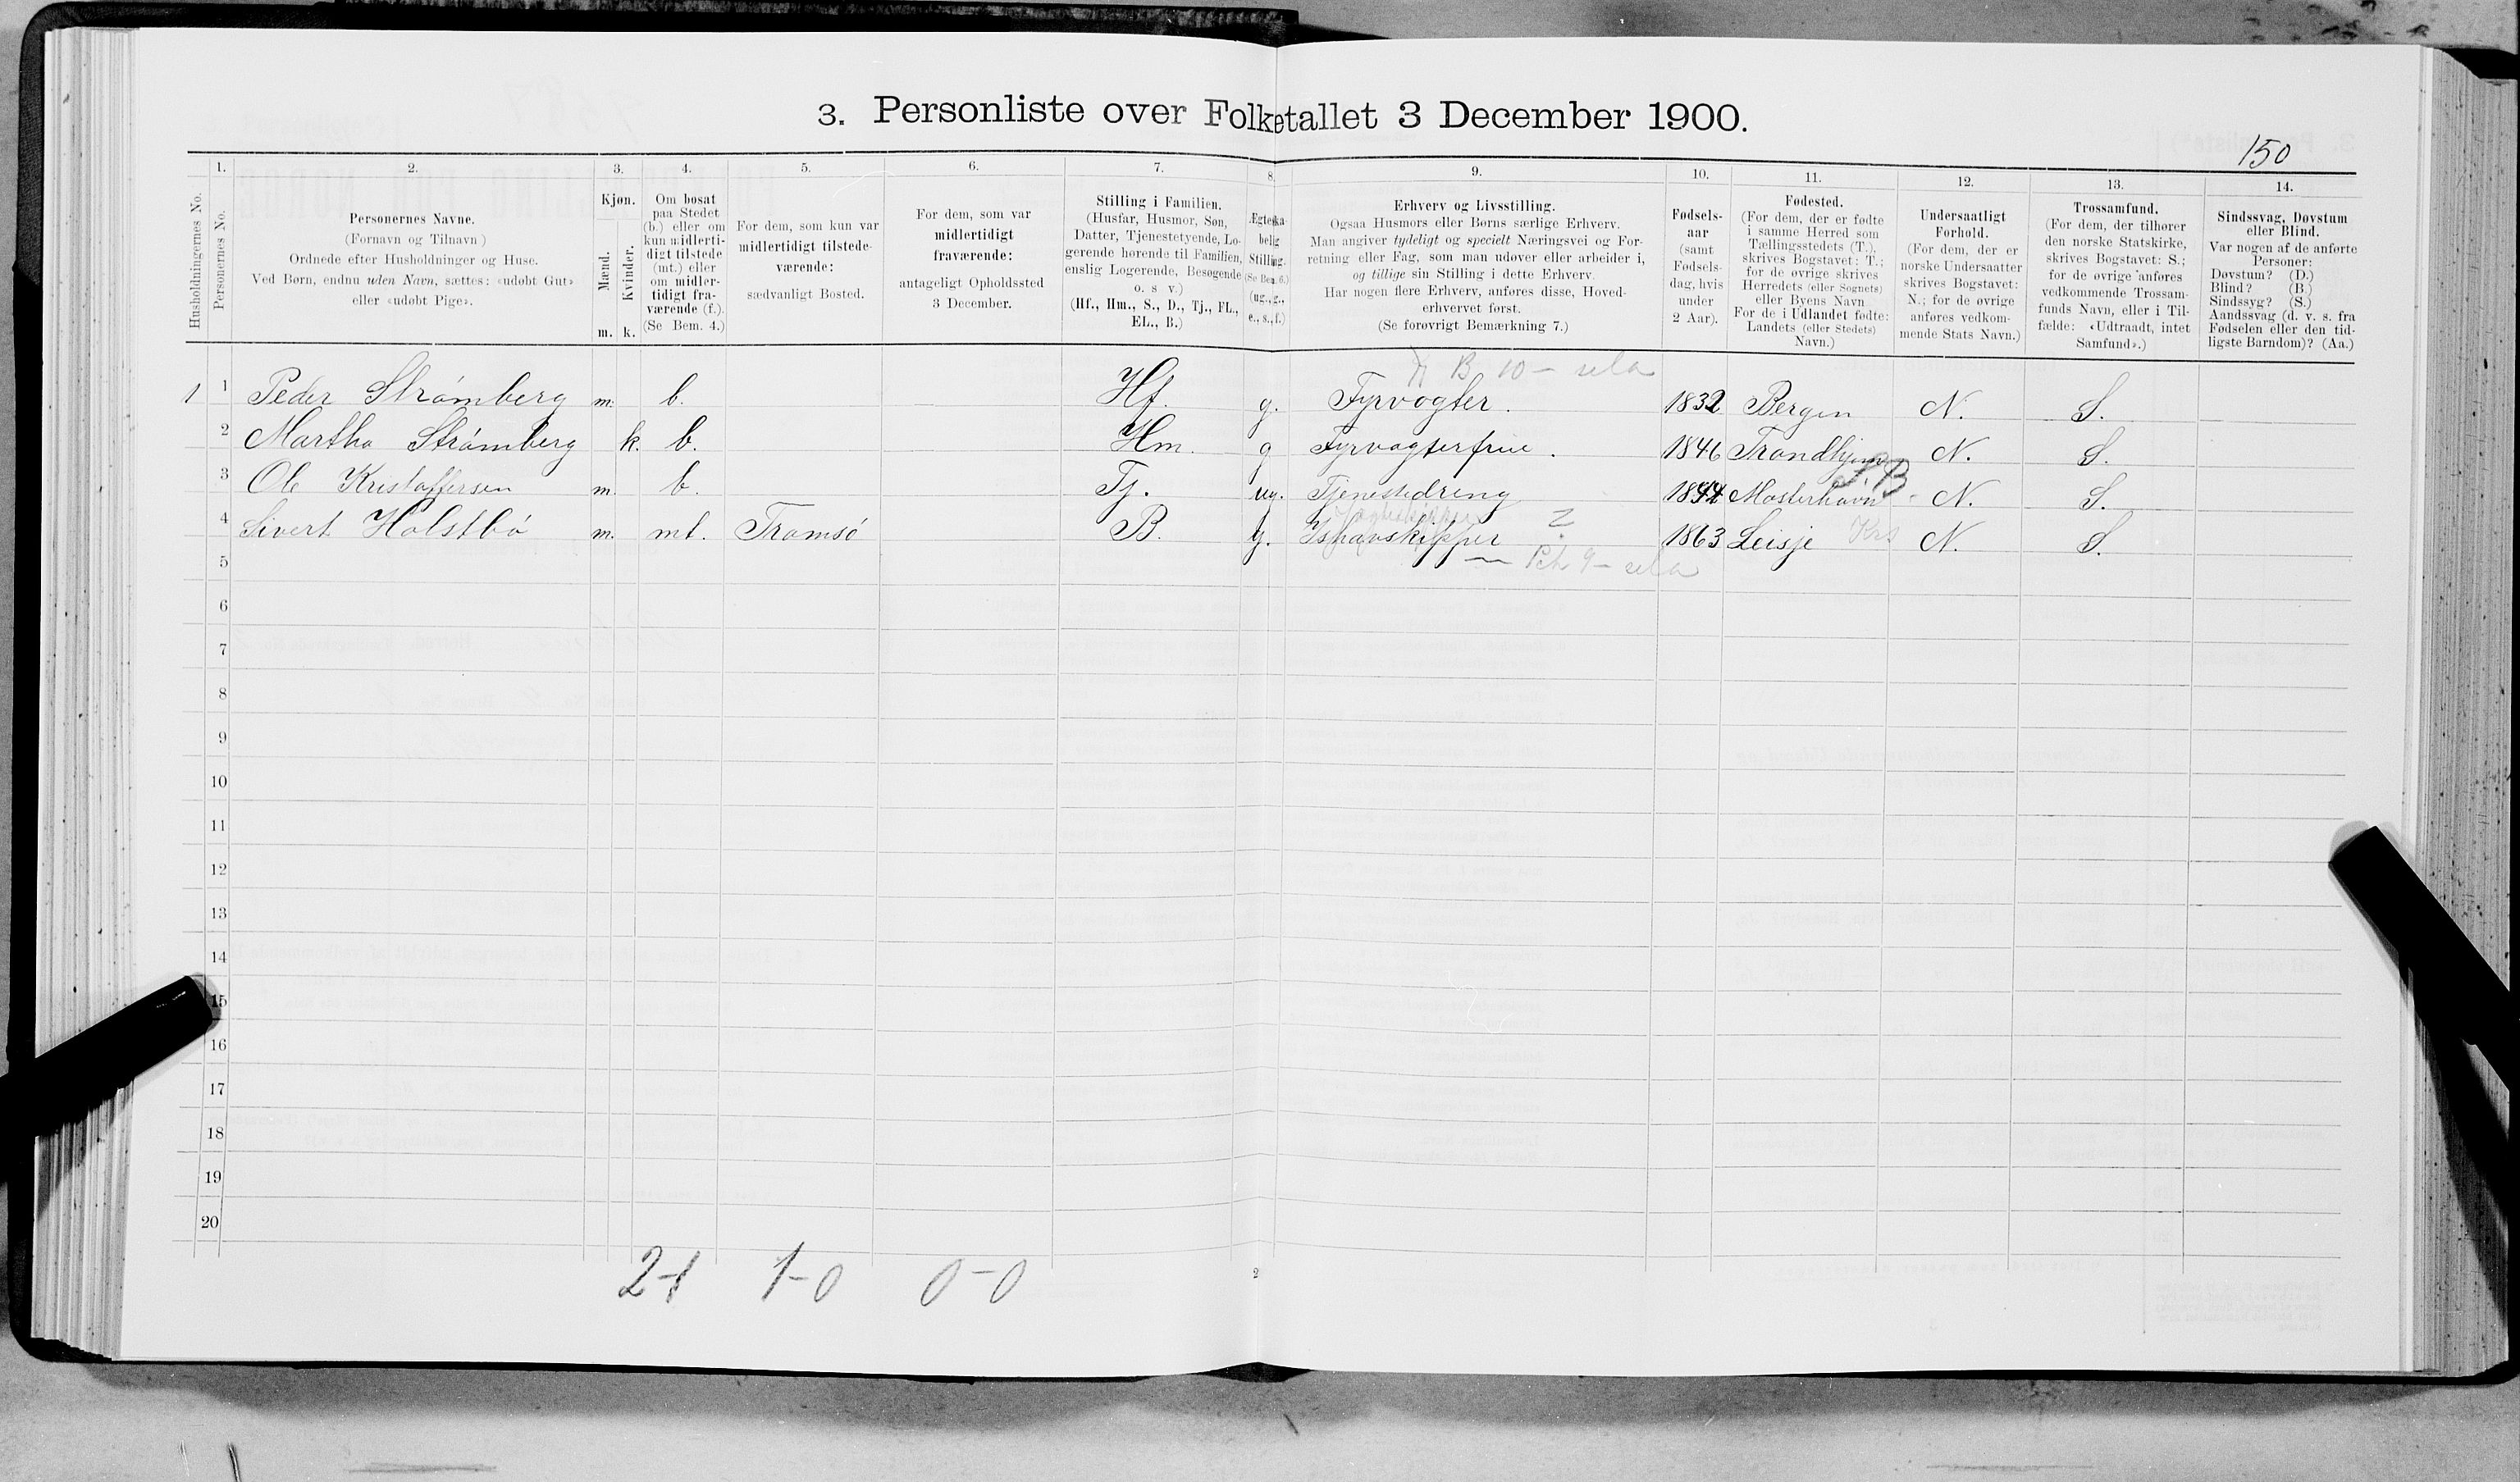 3. Personliste over Folketallet 3 December 1900.
150
1. 2. 3. 4. 5. 6. 7. 8. 9. 10. 11. 12. 13. 14.
Husholdningernes No.
Personernes No.
Personernes Navne.
(Fornavn og Tilnavn)
Ordnede efter Husholdninger og Huse.
Ved Børn, endnu uden Navn, sættes: «udøbt Gut»
eller «udøbt Pige».
Kjøn.
Mænd.
Kvinder.
m. k.
Om bosat
paa Stedet
(b.) eller om
kun midlerti-
digt tilstede
(mt.) eller
om midler-
tidigt fra-
værende (f.).
(Se Bem. 4.)
For dem, som kun var
midlertidigt tilstede-
værende:
sædvanligt Bosted.
For dem, som var
midlertidigt
fraværende:
antageligt Opholdssted
3 December.
Stilling i Familien.
(Husfar, Husmor, Søn,
Datter, Tjenestetyende, Lo-
gerende hørende til Familien,
enslig Logerende, Besøgende
o. s v.)
(Hf., Hm., S., D., Tj., FL.,
EL., B.)
Ægteska-
belig
Stilling.
(Se Bem. 6.)
(ug., g.,
e., s., f.)
Erhverv og Livsstilling.
Ogsaa Husmors eller Børns særlige Erhverv.
Man angiver tydeligt og specielt Næringsvei og For-
retning eller Fag, som man udøver eller arbeider i,
og tillige sin Stilling i dette Erhverv.
Har nogen flere Erhverv, anføres disse, Hoved-
erhvervet først.
(Se forøvrigt Bemærkning 7.)
Fødsels-
aar
(samt
Fødsels-
dag, hvis
under
2 Aar).
Fødested.
(For dem, der er fødte
i samme Herred som
Tællingsstedets (T.),
skrives Bogstavet: T.;
for de øvrige skrives
Herredets (eller Sognets)
eller Byens Navn
For de i Udlandet fødte:
Landets (eller Stedets)
Navn.)
Undersaatligt
Forhold.
(For dem, der er
norske Undersaatter
skrives Bogstavet:
N.; for de øvrige
anføres vedkom-
mende Stats Navn.)
Trossamfund.
(For dem, der tilhører
den norske Statskirke,
skrives Bogstavet: S.;
for de øvrige anføres
vedkommende Trossam-
funds Navn, eller i Til-
fælde: «Udtraadt, intet
Samfund».)
Sindssvag, Døvstum
eller Blind.
Var nogen af de anførte
Personer:
Døvstum? (D.)
Blind? (B.)
Sindssyg? (S.)
Aandssvag (d. v. s. fra
Fødselen eller den tid-
ligste Barndom)? (Aa.)
B 10 -
1 1 Peder Strømberg m. b. Hf. g. Fyrvogter. 1832 Bergen N. S.
2 Martha Strømberg k. b. Hm. g Fyrvogterfrue. 1846 Trondhjem N. S.
S.B
3 Ole Kristoffersen m. b. Tj. ug. Tjenestedreng Mosterhavn N. S.
4 Sivert Holstbø m. mt. Tromsø B. g. Ishavskipper 1863 Leisje Krs N. S.
5
6
7
8
9
10
11
12
13
14
15
16
17
18
19
20
2-1 1-0 0-0
2